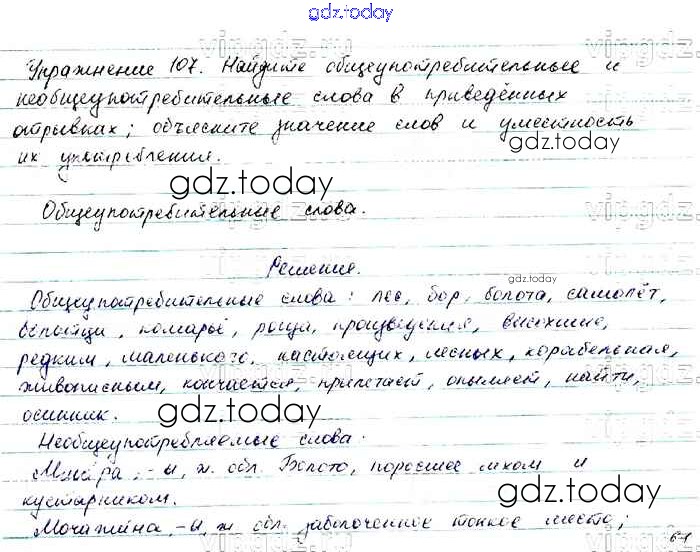 gdz.today
Упражнение 107. Найдите общеупотребительные и
необщеупотребительные слова в приведённых
отрывках; объясните значение слов и уместность
их употребления.
gdz.today
gdz.today
Общеупотребительные слова.
Решение.
gdz.today
Общеупотребительные слова: лес, бор, болота, самолёт,
комары, роща, произведения, высохшие,
редким, маленького, настоящих, лесных, корабельная,
живописным, кончается, прилетает, опыляет, найти,
осинник.
gdz.today
gdz.today
Необщеупотребляемые слова.
Мшара, -ы, ж. обл. Болото, поросшее мхом и
кустарником.
gdz.today
Мочажина, -ы, ж обл. заболоченное топкое место;
64